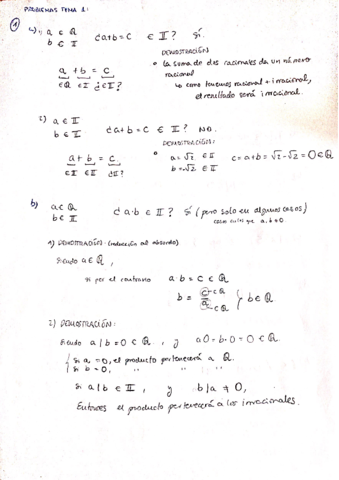 PROBLEMAS TEMA 1:
1
a ∈ Q
b ∈ I
¿a+b=c ∈ I? Sí.
DEMOSTRACIÓN
• la suma de dos racionales da un número racional
↳ como tenemos racional + irracional, el resultado será irracional.
a + b = c
∈Q ∈I ¿∈I?
a ∈ I
b ∈ I
¿a+b=c ∈ I? NO.
DEMOSTRACIÓN:
a + b = c
∈I ∈I ¿I?
• a=√2 ∈ I
b=√2 ∈ I
c=a+b=√2-√2=0∈Q
b)
a∈Q
b∈I
¿a·b ∈ I? Sí (pero solo en algunos casos)
a·b≠0
1) DEMOSTRACIÓN: (reducción al absurdo)
Siendo a∈Q,
si por el contrario a·b=c∈Q
b = c/a } b∈Q
∈Q
∈Q
2) DEMOSTRACIÓN:
Siendo a/b=0∈Q, y a0=b·0=0∈Q
si a=0, el producto pertenecerá a Q.
si b=0, " " "
Si a/b ∈ I, y b/a ≠ 0,
Entonces el producto pertenecerá a los irracionales.